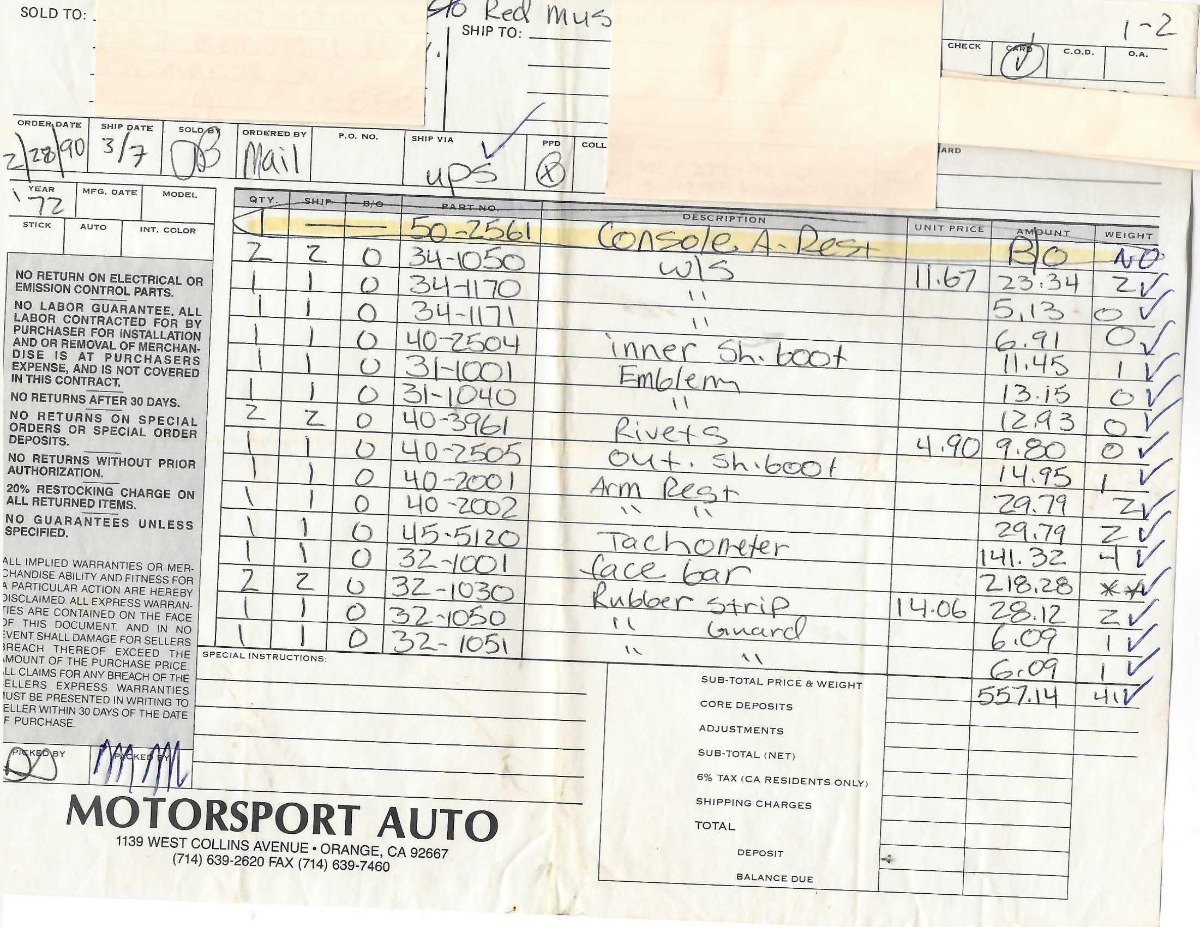 SOLD TO:
Red Mus
SHIP TO:
1-2
CHECK CARD C.O.D. O.A.
ORDER DATE SHIP DATE SOLD BY ORDERED BY P.O. NO. SHIP VIA PPD COLL
2/28/90 3/7 Mail UPS X
ARD
YEAR MFG. DATE MODEL
'72
STICK AUTO INT. COLOR
QTY. SHIP B/O PART NO. DESCRIPTION UNIT PRICE AMOUNT WEIGHT
1 — 50-2561 Console, A-Rest B/O NO
2 2 0 34-1050 w/s 11.67 23.34 2 ✓
1 1 0 34-1170 " 5.13 0 ✓
1 1 0 34-1171 " 6.91 0 ✓
1 1 0 40-2504 inner sh. boot 11.45 1 ✓
1 1 0 31-1001 Emblem 13.15 0 ✓
1 1 0 31-1040 " 12.93 0 ✓
2 2 0 40-3961 Rivets 4.90 9.80 0 ✓
1 1 0 40-2505 out. sh. boot 14.95 1 ✓
1 1 0 40-2001 Arm Rest 29.79 2 ✓
1 1 0 40-2002 " " 29.79 2 ✓
1 1 0 45-5120 Tachometer 141.32 4 ✓
1 1 0 32-1001 face bar 218.28 ** ✓
2 2 0 32-1030 Rubber strip 14.06 28.12 2 ✓
1 1 0 32-1050 " Guard 6.09 1 ✓
1 1 0 32-1051 " " 6.09 1 ✓
NO RETURN ON ELECTRICAL OR
EMISSION CONTROL PARTS.
NO LABOR GUARANTEE. ALL
LABOR CONTRACTED FOR BY
PURCHASER FOR INSTALLATION
AND OR REMOVAL OF MERCHAN-
DISE IS AT PURCHASERS
EXPENSE, AND IS NOT COVERED
IN THIS CONTRACT.
NO RETURNS AFTER 30 DAYS.
NO RETURNS ON SPECIAL
ORDERS OR SPECIAL ORDER
DEPOSITS.
NO RETURNS WITHOUT PRIOR
AUTHORIZATION.
20% RESTOCKING CHARGE ON
ALL RETURNED ITEMS.
NO GUARANTEES UNLESS
SPECIFIED.
ALL IMPLIED WARRANTIES OR MER-
CHANDISE ABILITY AND FITNESS FOR
A PARTICULAR ACTION ARE HEREBY
DISCLAIMED. ALL EXPRESS WARRAN-
TIES ARE CONTAINED ON THE FACE
OF THIS DOCUMENT AND IN NO
EVENT SHALL DAMAGE FOR SELLERS
BREACH THEREOF EXCEED THE
AMOUNT OF THE PURCHASE PRICE.
ALL CLAIMS FOR ANY BREACH OF THE
SELLERS EXPRESS WARRANTIES
MUST BE PRESENTED IN WRITING TO
SELLER WITHIN 30 DAYS OF THE DATE
OF PURCHASE.
PICKED BY PICKED BY
SPECIAL INSTRUCTIONS:
SUB-TOTAL PRICE & WEIGHT 557.14 41 ✓
CORE DEPOSITS
ADJUSTMENTS
SUB-TOTAL (NET)
6% TAX (CA RESIDENTS ONLY)
SHIPPING CHARGES
TOTAL
DEPOSIT
BALANCE DUE
MOTORSPORT AUTO
1139 WEST COLLINS AVENUE • ORANGE, CA 92667
(714) 639-2620 FAX (714) 639-7460